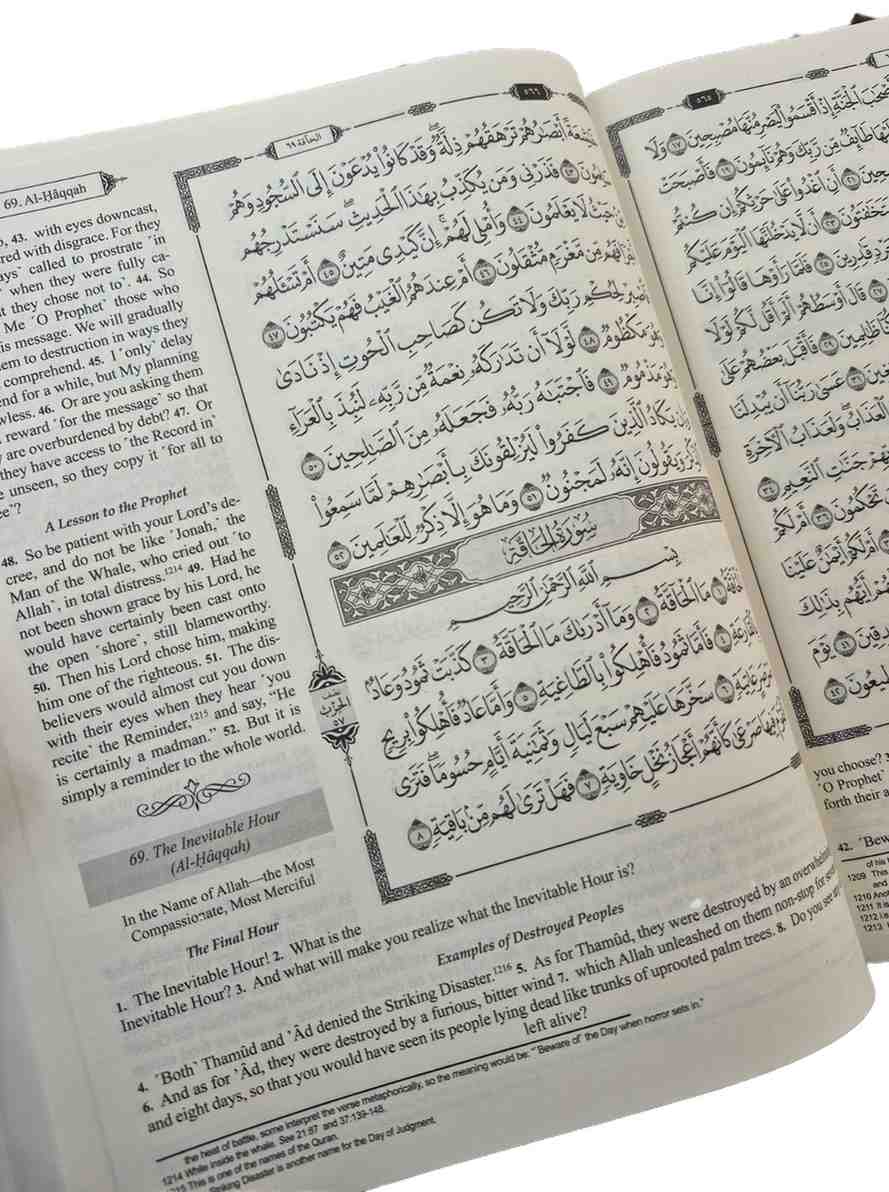 69. Al-Ḥâqqah
الحاقة ٦٩
٥٦٦
43. with eyes downcast,
red with disgrace. For they
called to prostrate ˹in
when they were fully ca-
t they chose not to˺. 44. So
Me ˹O Prophet˺ those who
is message. We will gradually
em to destruction in ways they
comprehend. 45. I ˹only˺ delay
end for a while, but My planning
wless. 46. Or are you asking them
reward ˹for the message˺ so that
are overburdened by debt? 47. Or
they have access to ˹the Record in˺
e unseen, so they copy it ˹for all to
ee˺?
A Lesson to the Prophet
48. So be patient with your Lord’s de-
cree, and do not be like ˹Jonah,˺ the
Man of the Whale, who cried out ˹to
Allah˺, in total distress.1214 49. Had he
not been shown grace by his Lord, he
would have certainly been cast onto
the open ˹shore˺, still blameworthy.
50. Then his Lord chose him, making
him one of the righteous. 51. The dis-
believers would almost cut you down
with their eyes when they hear ˹you
recite˺ the Reminder,1215 and say, “He
is certainly a madman.” 52. But it is
simply a reminder to the whole world.
69. The Inevitable Hour
(Al-Ḥâqqah)
In the Name of Allah—the Most
Compassionate, Most Merciful
The Final Hour
1. The Inevitable Hour! 2. What is the
Inevitable Hour? 3. And what will make you realize what the Inevitable Hour is?
Examples of Destroyed Peoples
4. ˹Both˺ Thamûd and ’Âd denied the Striking Disaster.1216 5. As for Thamûd, they were destroyed by an overwhelming
6. And as for ’Âd, they were destroyed by a furious, bitter wind 7. which Allah unleashed on them non-stop for
and eight days, so that you would have seen its people lying dead like trunks of uprooted palm trees. 8. Do you see any
left alive?
the heat of battle, some interpret the verse metaphorically, so the meaning would be: “˹Beware of˺ the Day when horror sets in.”
1214 While inside the whale. See 21:87 and 37:139-148.
1215 This is one of the names of the Quran.
Striking Disaster is another name for the Day of Judgment.
أَبْصَٰرُهُمْ تَرْهَقُهُمْ ذِلَّةٌ ۖ وَقَدْ كَانُوا۟ يُدْعَوْنَ إِلَى ٱلسُّجُودِ وَهُمْ
٤٣ فَذَرْنِى وَمَن يُكَذِّبُ بِهَٰذَا ٱلْحَدِيثِ ۖ سَنَسْتَدْرِجُهُم
حَيْثُ لَا يَعْلَمُونَ ٤٤ وَأُمْلِى لَهُمْ ۚ إِنَّ كَيْدِى مَتِينٌ ٤٥ أَمْ تَسْـَٔلُهُمْ
مِّن مَّغْرَمٍ مُّثْقَلُونَ ٤٦ أَمْ عِندَهُمُ ٱلْغَيْبُ فَهُمْ يَكْتُبُونَ ٤٧
لِحُكْمِ رَبِّكَ وَلَا تَكُن كَصَاحِبِ ٱلْحُوتِ إِذْ نَادَىٰ
وَهُوَ مَكْظُومٌ ٤٨ لَّوْلَآ أَن تَدَٰرَكَهُۥ نِعْمَةٌ مِّن رَّبِّهِۦ لَنُبِذَ بِٱلْعَرَآءِ
وَهُوَ مَذْمُومٌ ٤٩ فَٱجْتَبَٰهُ رَبُّهُۥ فَجَعَلَهُۥ مِنَ ٱلصَّٰلِحِينَ ٥٠
يَكَادُ ٱلَّذِينَ كَفَرُوا۟ لَيُزْلِقُونَكَ بِأَبْصَٰرِهِمْ لَمَّا سَمِعُوا۟
وَيَقُولُونَ إِنَّهُۥ لَمَجْنُونٌ ٥١ وَمَا هُوَ إِلَّا ذِكْرٌ لِّلْعَٰلَمِينَ ٥٢
سُورَةُ الحَاقَّة
بِسْمِ ٱللَّهِ ٱلرَّحْمَٰنِ ٱلرَّحِيمِ
١ مَا ٱلْحَآقَّةُ ٢ وَمَآ أَدْرَىٰكَ مَا ٱلْحَآقَّةُ ٣ كَذَّبَتْ ثَمُودُ وَعَادٌۢ
٤ فَأَمَّا ثَمُودُ فَأُهْلِكُوا۟ بِٱلطَّاغِيَةِ ٥ وَأَمَّا عَادٌ فَأُهْلِكُوا۟ بِرِيحٍ
عَاتِيَةٍ ٦ سَخَّرَهَا عَلَيْهِمْ سَبْعَ لَيَالٍ وَثَمَٰنِيَةَ أَيَّامٍ حُسُومًا ۖ فَتَرَى
فِيهَا صَرْعَىٰ كَأَنَّهُمْ أَعْجَازُ نَخْلٍ خَاوِيَةٍ ٧ فَهَلْ تَرَىٰ لَهُم مِّنۢ بَاقِيَةٍ ٨
نصف
الحزب
٥٧
٥٦٥
أَصْحَٰبَ ٱلْجَنَّةِ إِذْ أَقْسَمُوا۟ لَيَصْرِمُنَّهَا مُصْبِحِينَ ١٧ وَلَا
طَآئِفٌ مِّن رَّبِّكَ وَهُمْ نَآئِمُونَ ١٩ فَأَصْبَحَتْ
٢١ أَنِ ٱغْدُوا۟ عَلَىٰ حَرْثِكُمْ إِن كُنتُمْ
يَتَخَٰفَتُونَ ٢٣ أَن لَّا يَدْخُلَنَّهَا ٱلْيَوْمَ عَلَيْكُم
قَٰدِرِينَ ٢٥ فَلَمَّا رَأَوْهَا قَالُوٓا۟ إِنَّا
٢٧ قَالَ أَوْسَطُهُمْ أَلَمْ أَقُل لَّكُمْ لَوْلَا
ظَٰلِمِينَ ٢٩ فَأَقْبَلَ بَعْضُهُمْ عَلَىٰ
٣١ عَسَىٰ رَبُّنَآ أَن يُبْدِلَنَا
ٱلْعَذَابُ ۖ وَلَعَذَابُ ٱلْءَاخِرَةِ
جَنَّٰتِ ٱلنَّعِيمِ ٣٤
تَحْكُمُونَ ٣٦ أَمْ لَكُمْ
أَمْ لَكُمْ أَيْمَٰنٌ عَلَيْنَا
أَيُّهُم بِذَٰلِكَ
٤١ يَوْمَ
٤٢
you choose?
˹O Prophet˺
forth their
42. ˹Bew
of his
1209 This
and
1210 Anot
1211 It
1212
1213